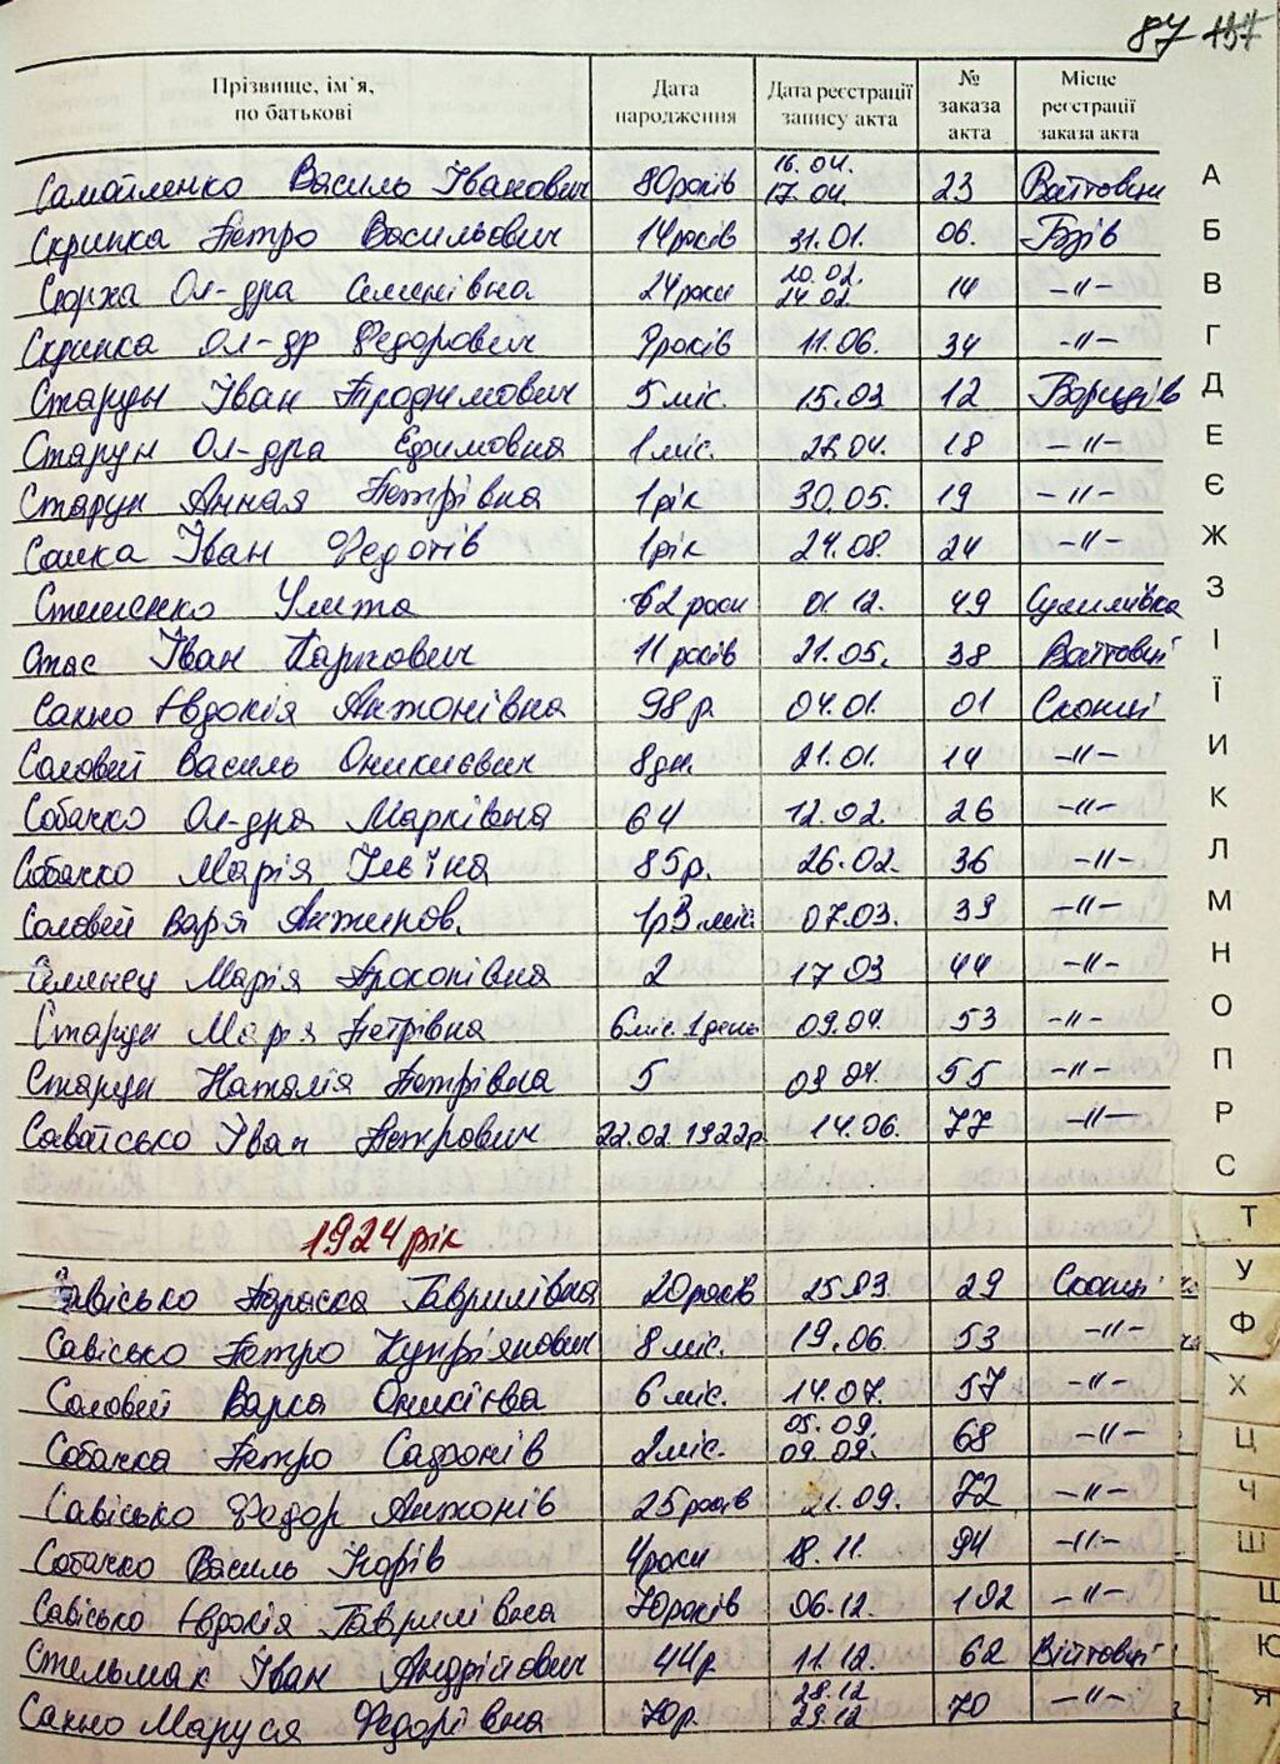 87 157
Прізвище, ім'я, по батькові Дата народження Дата реєстрації запису акта № заказа акта Місце реєстрації заказа акта
Самойленко Василь Іванович 80років 16.04. 17.04. 23 Войтовці А
Скрипка Петро Васильович 14років 31.01. 06. Гузів Б
Сюрха Ол-дра Семенівна 24роки 20.02. 24.02. 14 -"- В
Скрипка Ол-др Федорович 9років 11.06. 34 -"- Г
Старун Іван Трохимович 5 міс. 15.03 12 Ворщів Д
Старун Ол-дра Ефимовна 1 міс. 28.04. 18 -"- Е
Старун Анная Петрівна 1 рік 30.05. 19 -"- Є
Сомка Іван Федотів 1рік 24.08. 24 -"- Ж
Стешенко Улита 62 роки 01.12. 49 Сулимівка З
Стас Іван Карпович 11 років 21.05. 38 Войтовці І
Сахно Євдокія Антонівна 98 р. 04.01. 01 Скопці Ї
Соловей Василь Оникиєвич 8дн. 21.01. 14 -"- И
Собачко Ол-дра Марківна 64 12.02. 26 -"- К
Собачко Марія Ільїна 85р. 26.02. 36 -"- Л
Соловей Варя 1р3 міс. 07.03. 39 -"- М
Марія Прокопівна 2 17 03 44 -"- Н
Старун Марія Петрівна 6міс. 1 день 09.04. 53 -"- О
Старун Наталія Петрівна 5 09 04. 55 -"- П
Савайсько Іван Петрович 22.02.1922р. 14.06. 77 -"- Р
С
1924 рік Т
Савісько Параска Гаврилівна 20років 25.03 29 Скопці У
Савісько Петро Купріянович 8 міс. 19.06. 53 -"- Ф
Соловей Варка Оникієва 6 міс. 14.07. 57 -"- Х
Собачка Петро Сафонів 2міс. 05.09. 09.09. 68 -"- Ц
Савісько Федор Антонів 25 років 21.09. 72 -"- Ч
Собачко Василь Юорів 4роки 18.11. 94 -"- Ш
Савісько Євдокія Гаврилівна 70років 06.12. 102 -"- Щ
Стельмах Іван Андрійович 44р. 11.12. 62 Війтовці Ю
Сахно Маруся Федорівна 70р. 28.12 29.12 70 -"- Я